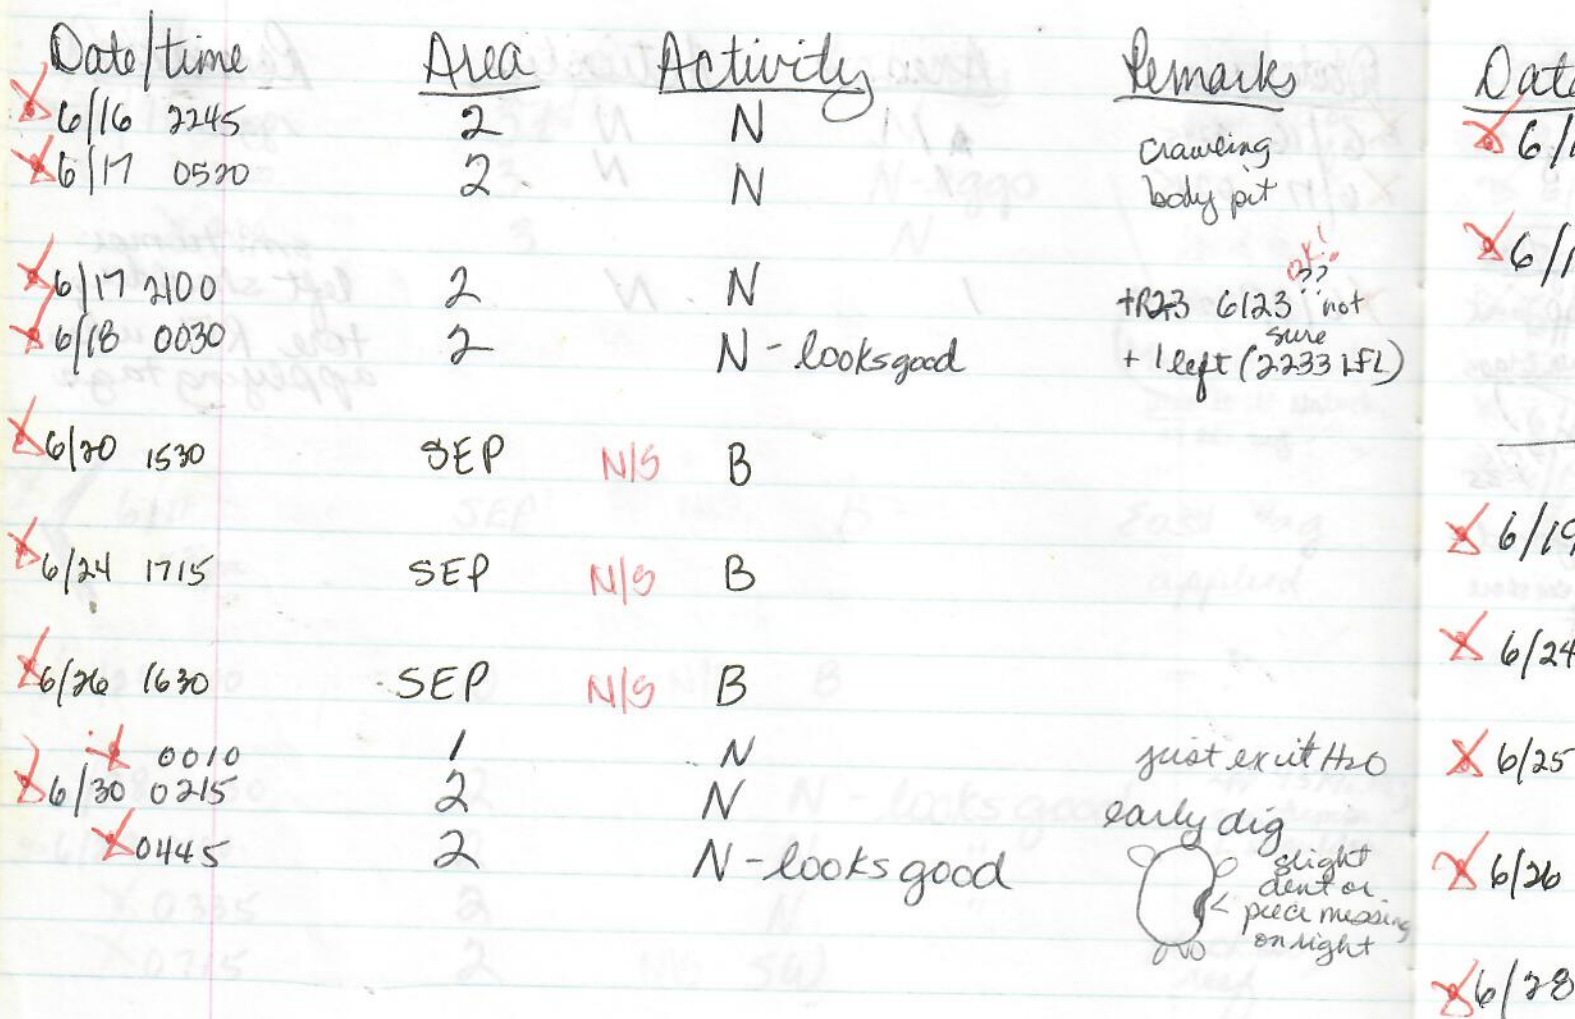 Date/time Area Activity Remarks Date
6/16 2245 2 N crawling 6/1
6/17 0520 2 N body pit
6/1
6/17 2100 2 N +R23 6123 ?? not sure OK!
6/18 0030 2 N - looks good + 1 left (2233 LFL)
6/20 1530 SEP N/S B
6/19
6/24 1715 SEP N/S B
6/24
6/26 1630 SEP N/S B
0010 1 N just exit H2O 6/25
6/30 0215 2 N early dig
0445 2 N - looks good slight 6/26
dent or
< piece missing
on right
6/28